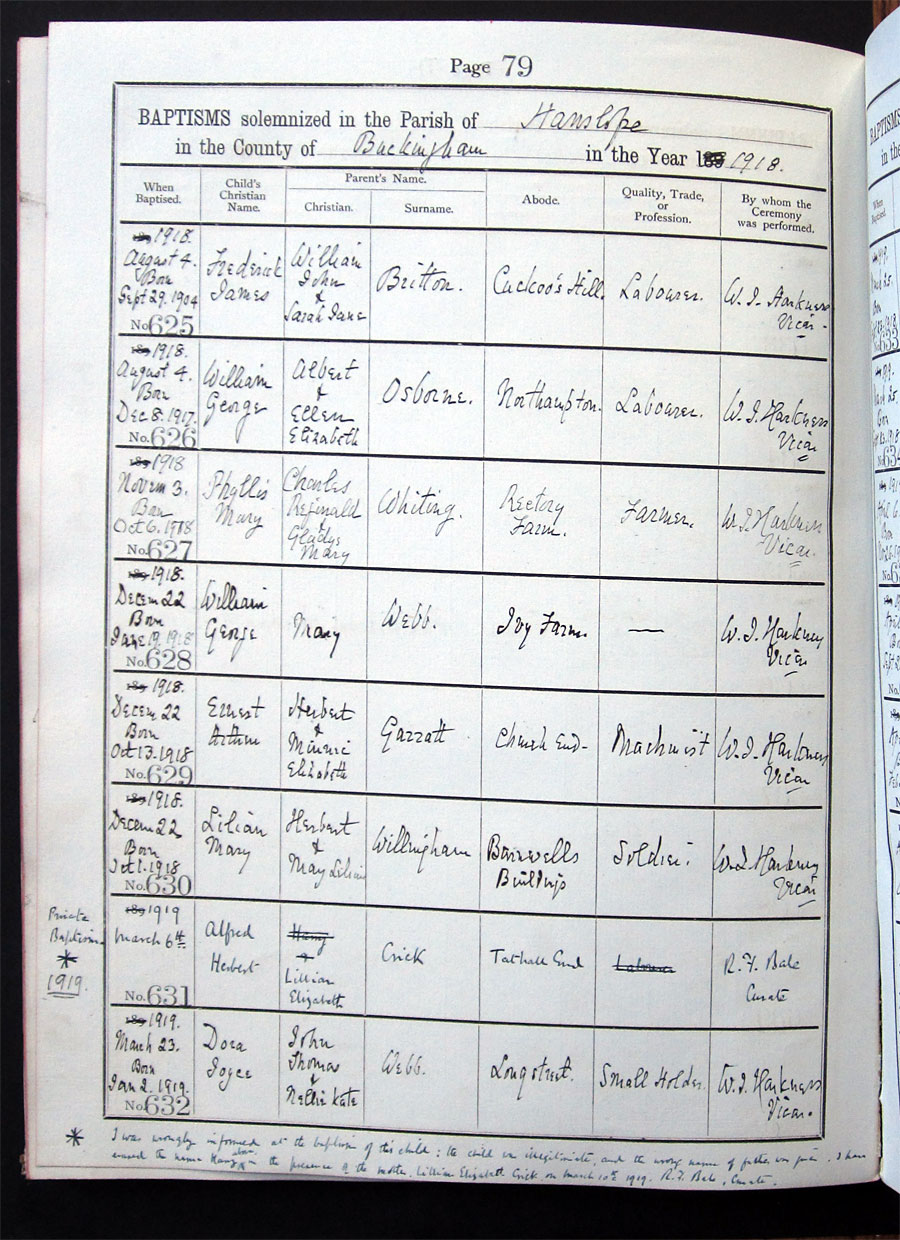 Page 79
BAPTISMS solemnized in the Parish of Hanslope
in the County of Buckingham in the Year 1918.
When Baptised.
Child's Christian Name.
Parent's Name.
Christian.
Surname.
Abode.
Quality, Trade, or Profession.
By whom the Ceremony was performed.
1918.
August 4.
Born
Sept 29. 1904
No. 625
Frederick
James
William
John
&
Sarah Jane
Britton.
Cuckoo's Hill.
Labourer.
W. J. Harkness
Vicar.
1918.
August 4.
Born
Dec 8. 1917.
No. 626
William
George
Albert
&
Ellen
Elizabeth
Osborne.
Northampton.
Labourer.
W. J. Harkness
Vicar
1918
Novem 3.
Born
Oct 6. 1918
No. 627
Phyllis
Mary
Charles
Reginald
&
Gladys
Mary
Whiting.
Rectory
Farm.
Farmer.
W. J. Harkness
Vicar.
1918.
Decem 22
Born
June 19. 1918
No. 628
William
George
Mary
Webb.
Ivy Farm.
—
W. J. Harkness
Vicar
1918.
Decem 22
Born
Oct 13. 1918
No. 629
Ernest
Arthur
Herbert
&
Minnie
Elizabeth
Garratt
Church End-
Machinist
W. J. Harkness
Vicar
1918.
Decem 22
Born
Oct 1. 1918
No. 630
Lilian
Mary
Herbert
&
May Lilian
Willingham
Buildings
Soldier.
W. J. Harkness
Vicar
Private
Baptism
*
1919.
1919
March 6th
No. 631
Alfred
Herbert
Harry
&
Lillian
Elizabeth
Crick
Tathall End
Labourer
R. F. Bale
Curate
1919.
March 23.
Born
Jan 2. 1919.
No. 632
Dora
Joyce
John
Thomas
&
Nellie Kate
Webb.
Long street.
Small Holder.
W. J. Harkness
Vicar.
* I was wrongly informed at the baptism of this child: the child is illegitimate, and the wrong name of father was given. I have
erased the name Harry above in the presence of the mother, Lillian Elizabeth Crick on March 10th 1919. R. F. Bale, Curate.